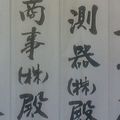 測器(株)殿
商事(株)殿